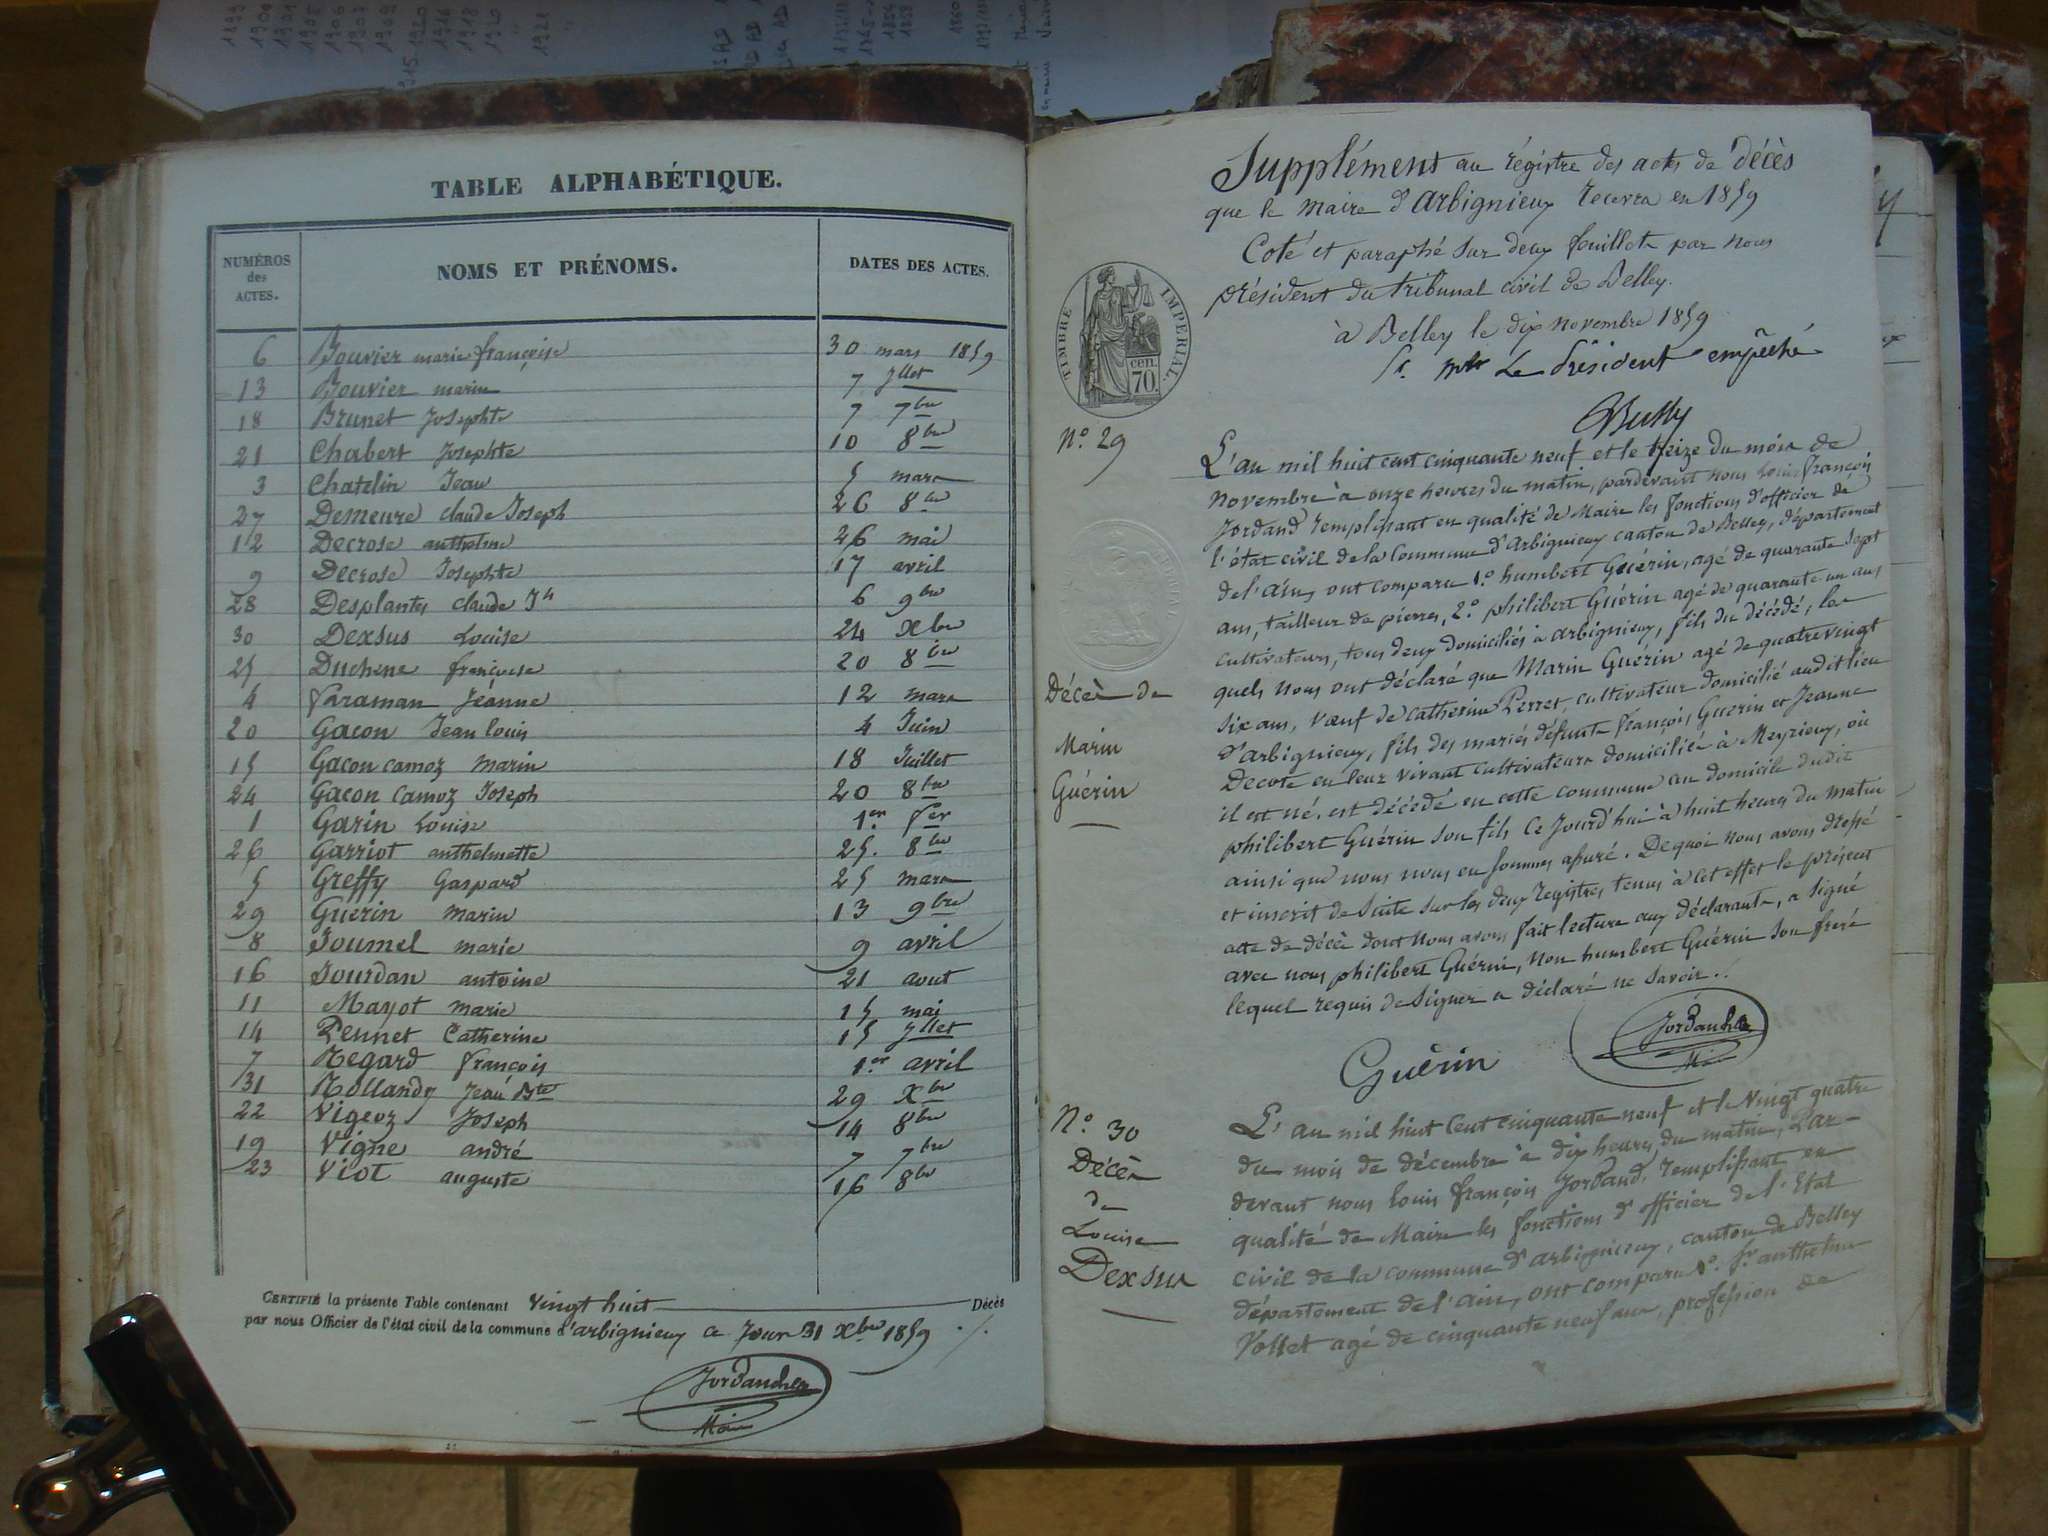 TABLE ALPHABÉTIQUE.
NUMÉROS des ACTES. NOMS ET PRÉNOMS. DATES DES ACTES.
6 Bouvier marie françoise 30 mars 1859
13 Bouvier marin 7 Jllet
18 Brunet Josephte 7 7bre
21 Chabert Josephte 10 8bre
3 Chatelin Jean 5 mars
27 Demeure claude Joseph 26 8bre
12 Decrose anthelme 26 mai
9 Decrose Josephte 17 avril
28 Desplantes claude Jh 6 9bre
30 Dexsus Louise 24 Xbre
25 Duchene françoise 20 8bre
4 faraman Jéanne 12 mars
20 Gacon Jean louis 4 Juin
15 Gacon camoz marin 18 Juillet
24 Gacon Camoz Joseph 20 8bre
1 Garin Louise 1er fer
26 Garriot anthelmette 25. 8bre
5 Greffy Gaspard 25 mars
29 Guerin marin 13 9bre
8 Joumel marie 9 avril
16 Jourdan antoine 21 aout
11 Mayot marie 15 mai
14 Pennet Catherine 15 Jllet
7 Regard françois 1er avril
31 Rollandy Jean Bte 29 Xbre
22 Vigeoz Joseph 14 8bre
19 Vigne andré 7 7bre
23 Viot auguste 16 8bre
CERTIFIÉ la présente Table contenant Vingt huit Décès
par nous Officier de l'état civil de la commune d'arbignieux ce Jour 31 Xbre 1859
Maire
Supplément au régistre des actes de décès
que le maire d'Arbignieux recevra en 1859
Coté et paraphé sur deux feuillets par nous
président du tribunal civil de Belley.
à Belley le dix novembre 1859
Le Président empêché
TIMBRE IMPERIAL.
cen. 70.
No. 29
L'an mil huit cent cinquante neuf et le treize du mois de
novembre à onze heures du matin, pardevant nous louis françois
Jordand remplissant en qualité de Maire les fonctions d'officier de
l'état civil de la Commune d'Arbignieux canton de Belley, département
de l'ain, ont comparu 1.o humbert Guérin, agé de quarante sept
ans, tailleur de pierres, 2.o philibert Guérin agé de quarante un ans
cultivateurs, tous deux domiciliés à arbignieux, fils du décédé, les
quels nous ont déclaré que Marin Guérin agé de quatre vingt
six ans, vœuf de catherine Perret, cultivateur domicilié audit lieu
d'arbignieux, fils des mariés défunts françois Guérin et Jeanne
Decote en leur vivant cultivateurs domiciliés à Meyrieux, où
il est né, est décédé en cette commune au domicile dudit
philibert Guérin son fils ce Jourd'hui à huit heures du matin
ainsi que nous nous en sommes assuré. De quoi nous avons dressé
et inscrit de suite sur les deux registres tenus à cet effet le présent
acte de décès dont nous avons fait lecture aux déclarants, a signé
avec nous philibert Guérin, non humbert Guérin son frere
lequel requis de signer a déclaré ne savoir.
Décès de
Marin
Guérin
Guérin
Maire
No. 30
Décès
de
Louise
Dexsus
L'an mil huit Cent cinquante neuf et le Vingt quatre
du mois de décembre à dix heures du matin, Par-
devant nous louis françois Jordand, remplissant en
qualité de Maire les fonctions d'officier de l'Etat
civil de la commune d'arbignieux, canton de Belley
département de l'ain, ont comparu 1.o Jh anthelme
Vollet agé de cinquante neuf ans, profession de